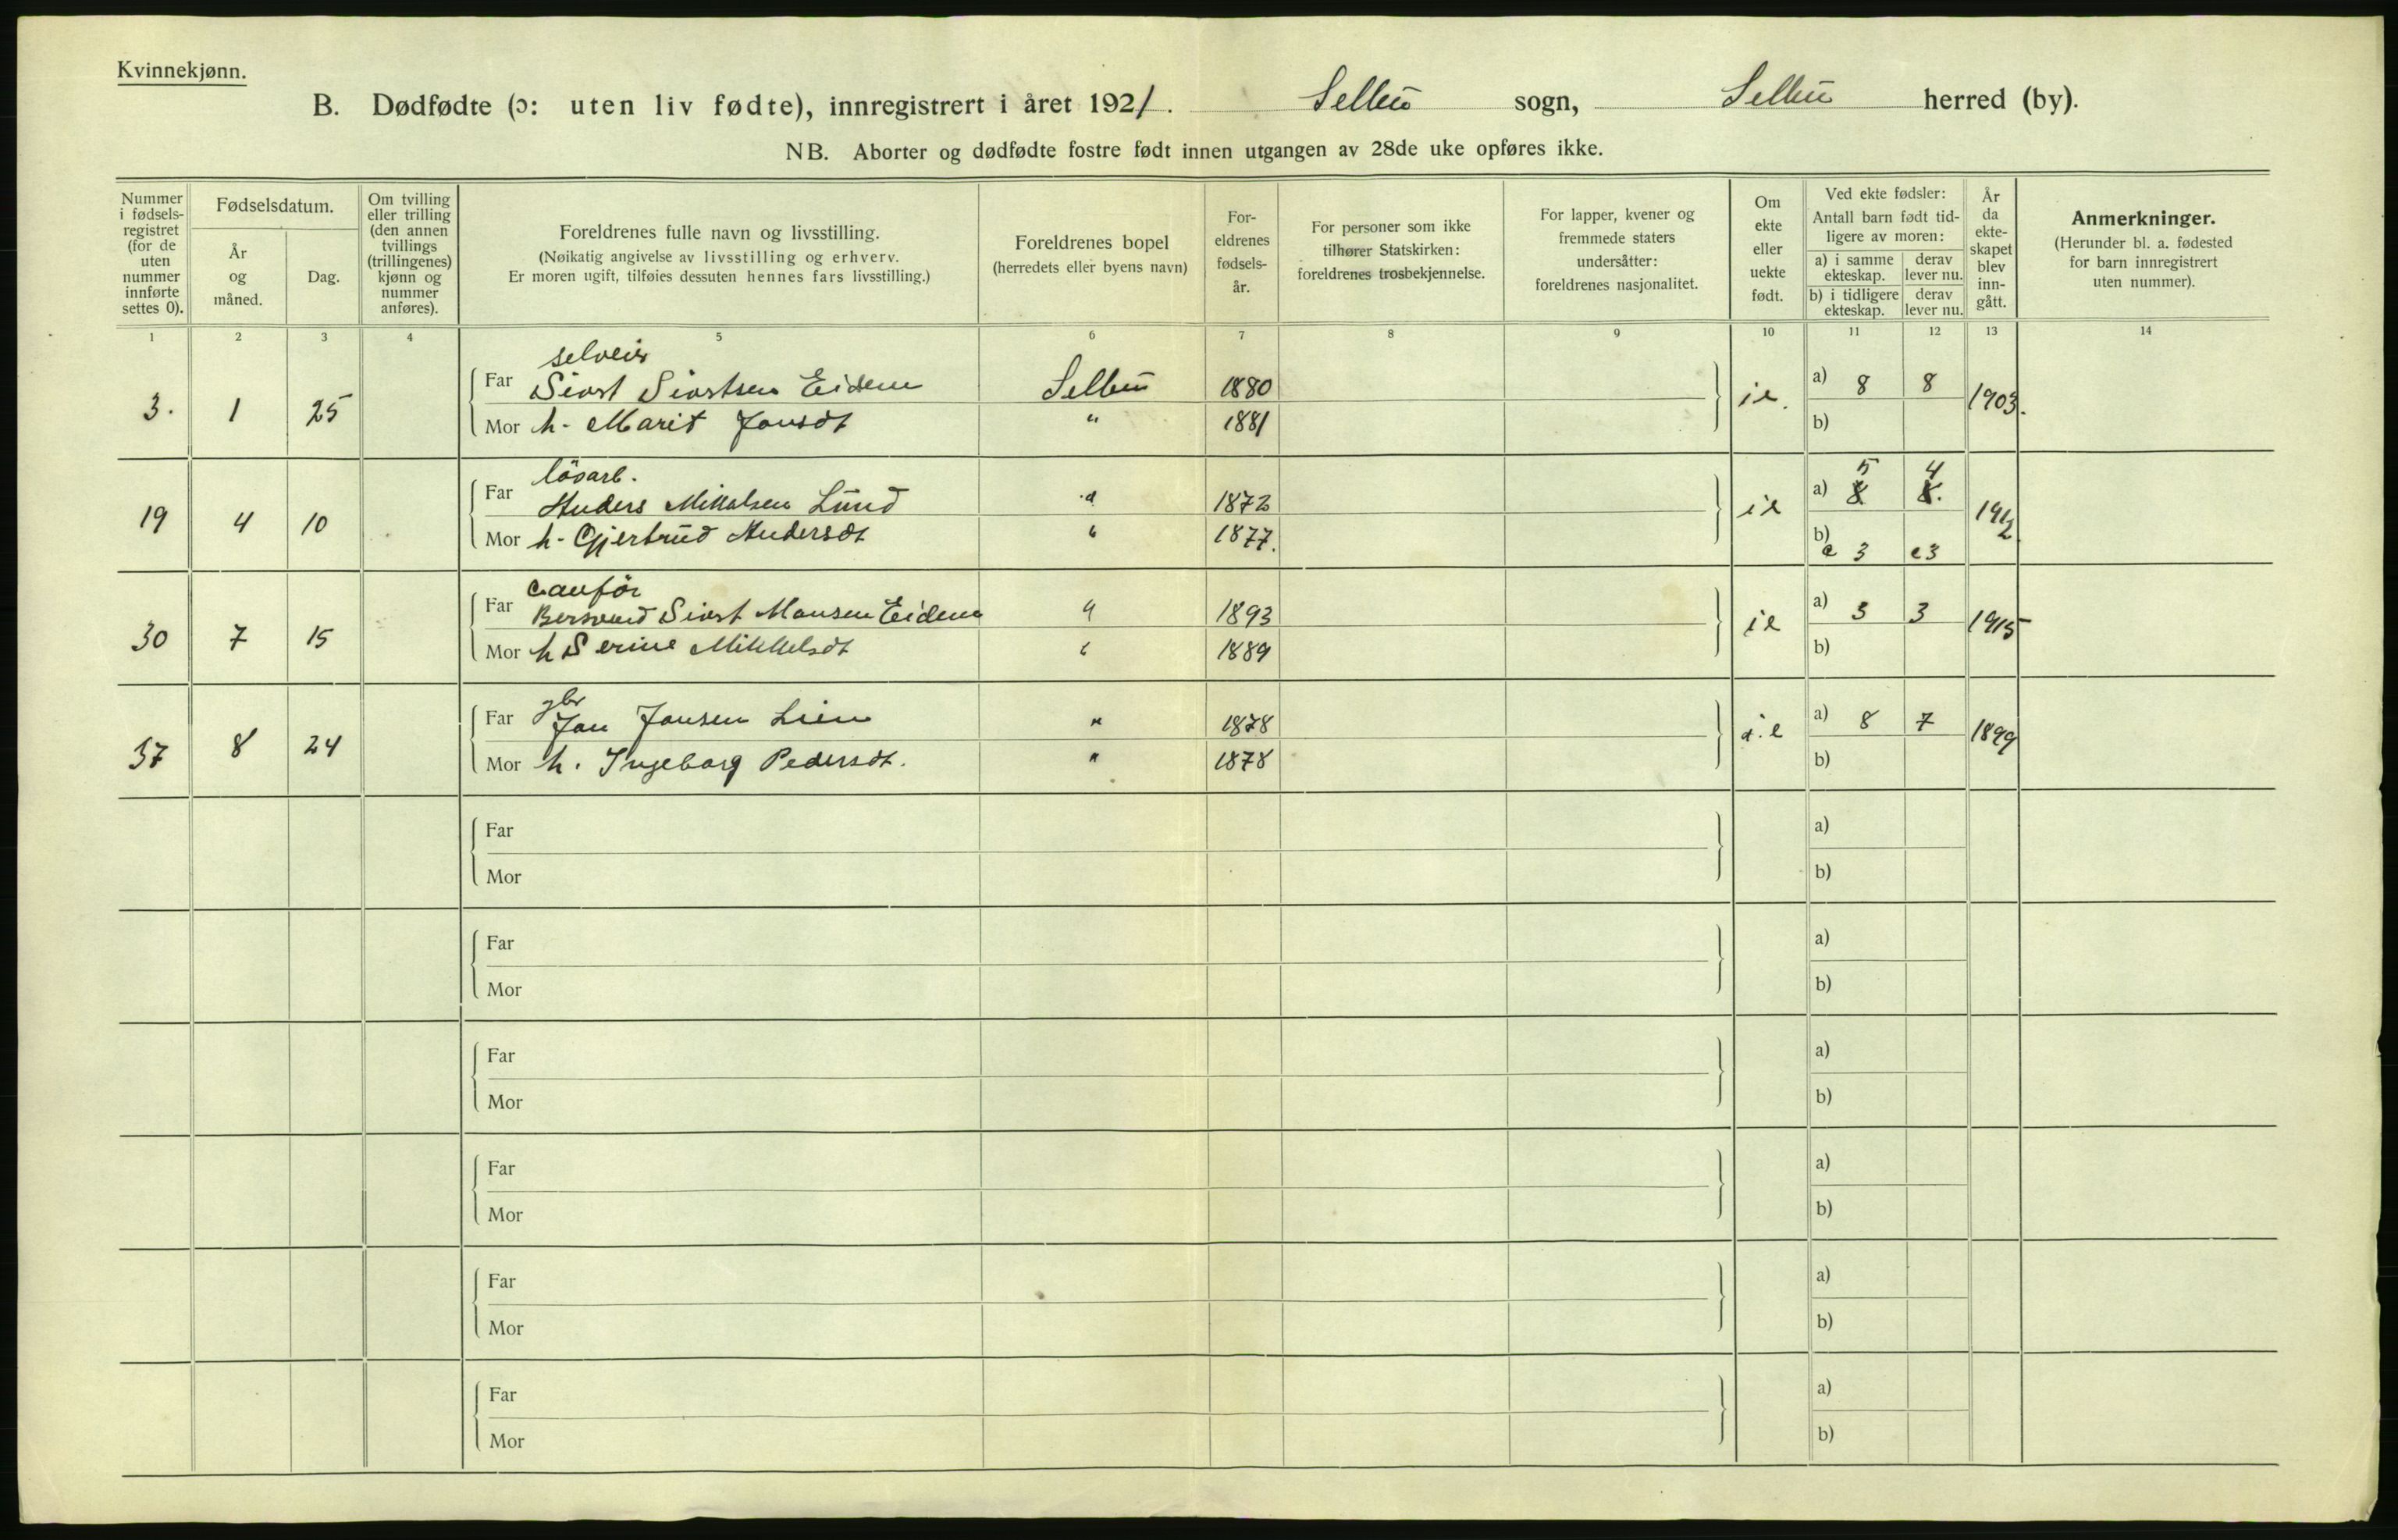 Kvinnekjønn.
B. Dødfødte (ɔ: uten liv fødte), innregistrert i året 1921. Selbu sogn, Selbu herred (by).
NB. Aborter og dødfødte fostre født innen utgangen av 28de uke opføres ikke.
Nummer i fødsels-registret (for de uten nummer innførte settes 0).
Fødselsdatum.
År og måned.
Dag.
Om tvilling eller trilling (den annen tvillings (trillingenes) kjønn og nummer anføres).
Foreldrenes fulle navn og livsstilling.
(Nøikatig angivelse av livsstilling og erhverv.
Er moren ugift, tilføies dessuten hennes fars livsstilling.)
Foreldrenes bopel
(herredets eller byens navn)
For-eldrenes fødsels-år.
For personer som ikke tilhører Statskirken: foreldrenes trosbekjennelse.
For lapper, kvener og fremmede staters undersåtter: foreldrenes nasjonalitet.
Om ekte eller uekte født.
Ved ekte fødsler:
Antall barn født tid-ligere av moren:
a) i samme ekteskap.
derav lever nu.
b) i tidligere ekteskap.
derav lever nu.
År da ekte-skapet blev inn-gått.
Anmerkninger.
(Herunder bl. a. fødested for barn innregistrert uten nummer).
1 2 3 4 5 6 7 8 9 10 11 12 13 14
selveier
3. 1 25 Far Sivert Sivertsen Eidem Selbu 1880 ie. a) 8 8 1903.
Mor h. Marit Jonsdt " 1881 b)
løsarb.
19 4 10 Far Anders Mikkalsen Lund " 1872 ie a) 5 4 1912
Mor h. Gjertrud Andersdt " 1877. b) e 3 e3
30 7 15 Far Bersvend Sivert Monsen Eidem " 1893 ie a) 3 3 1915
Mor h Serine Mikkelsdt " 1889 b)
gbr
37 8 24 Far Jon Jonsen Lien " 1878 ie a) 8 7 1899
Mor h. Ingeborg Pedersdt. " 1878 b)
Far a)
Mor b)
Far a)
Mor b)
Far a)
Mor b)
Far a)
Mor b)
Far a)
Mor b)
Far a)
Mor b)